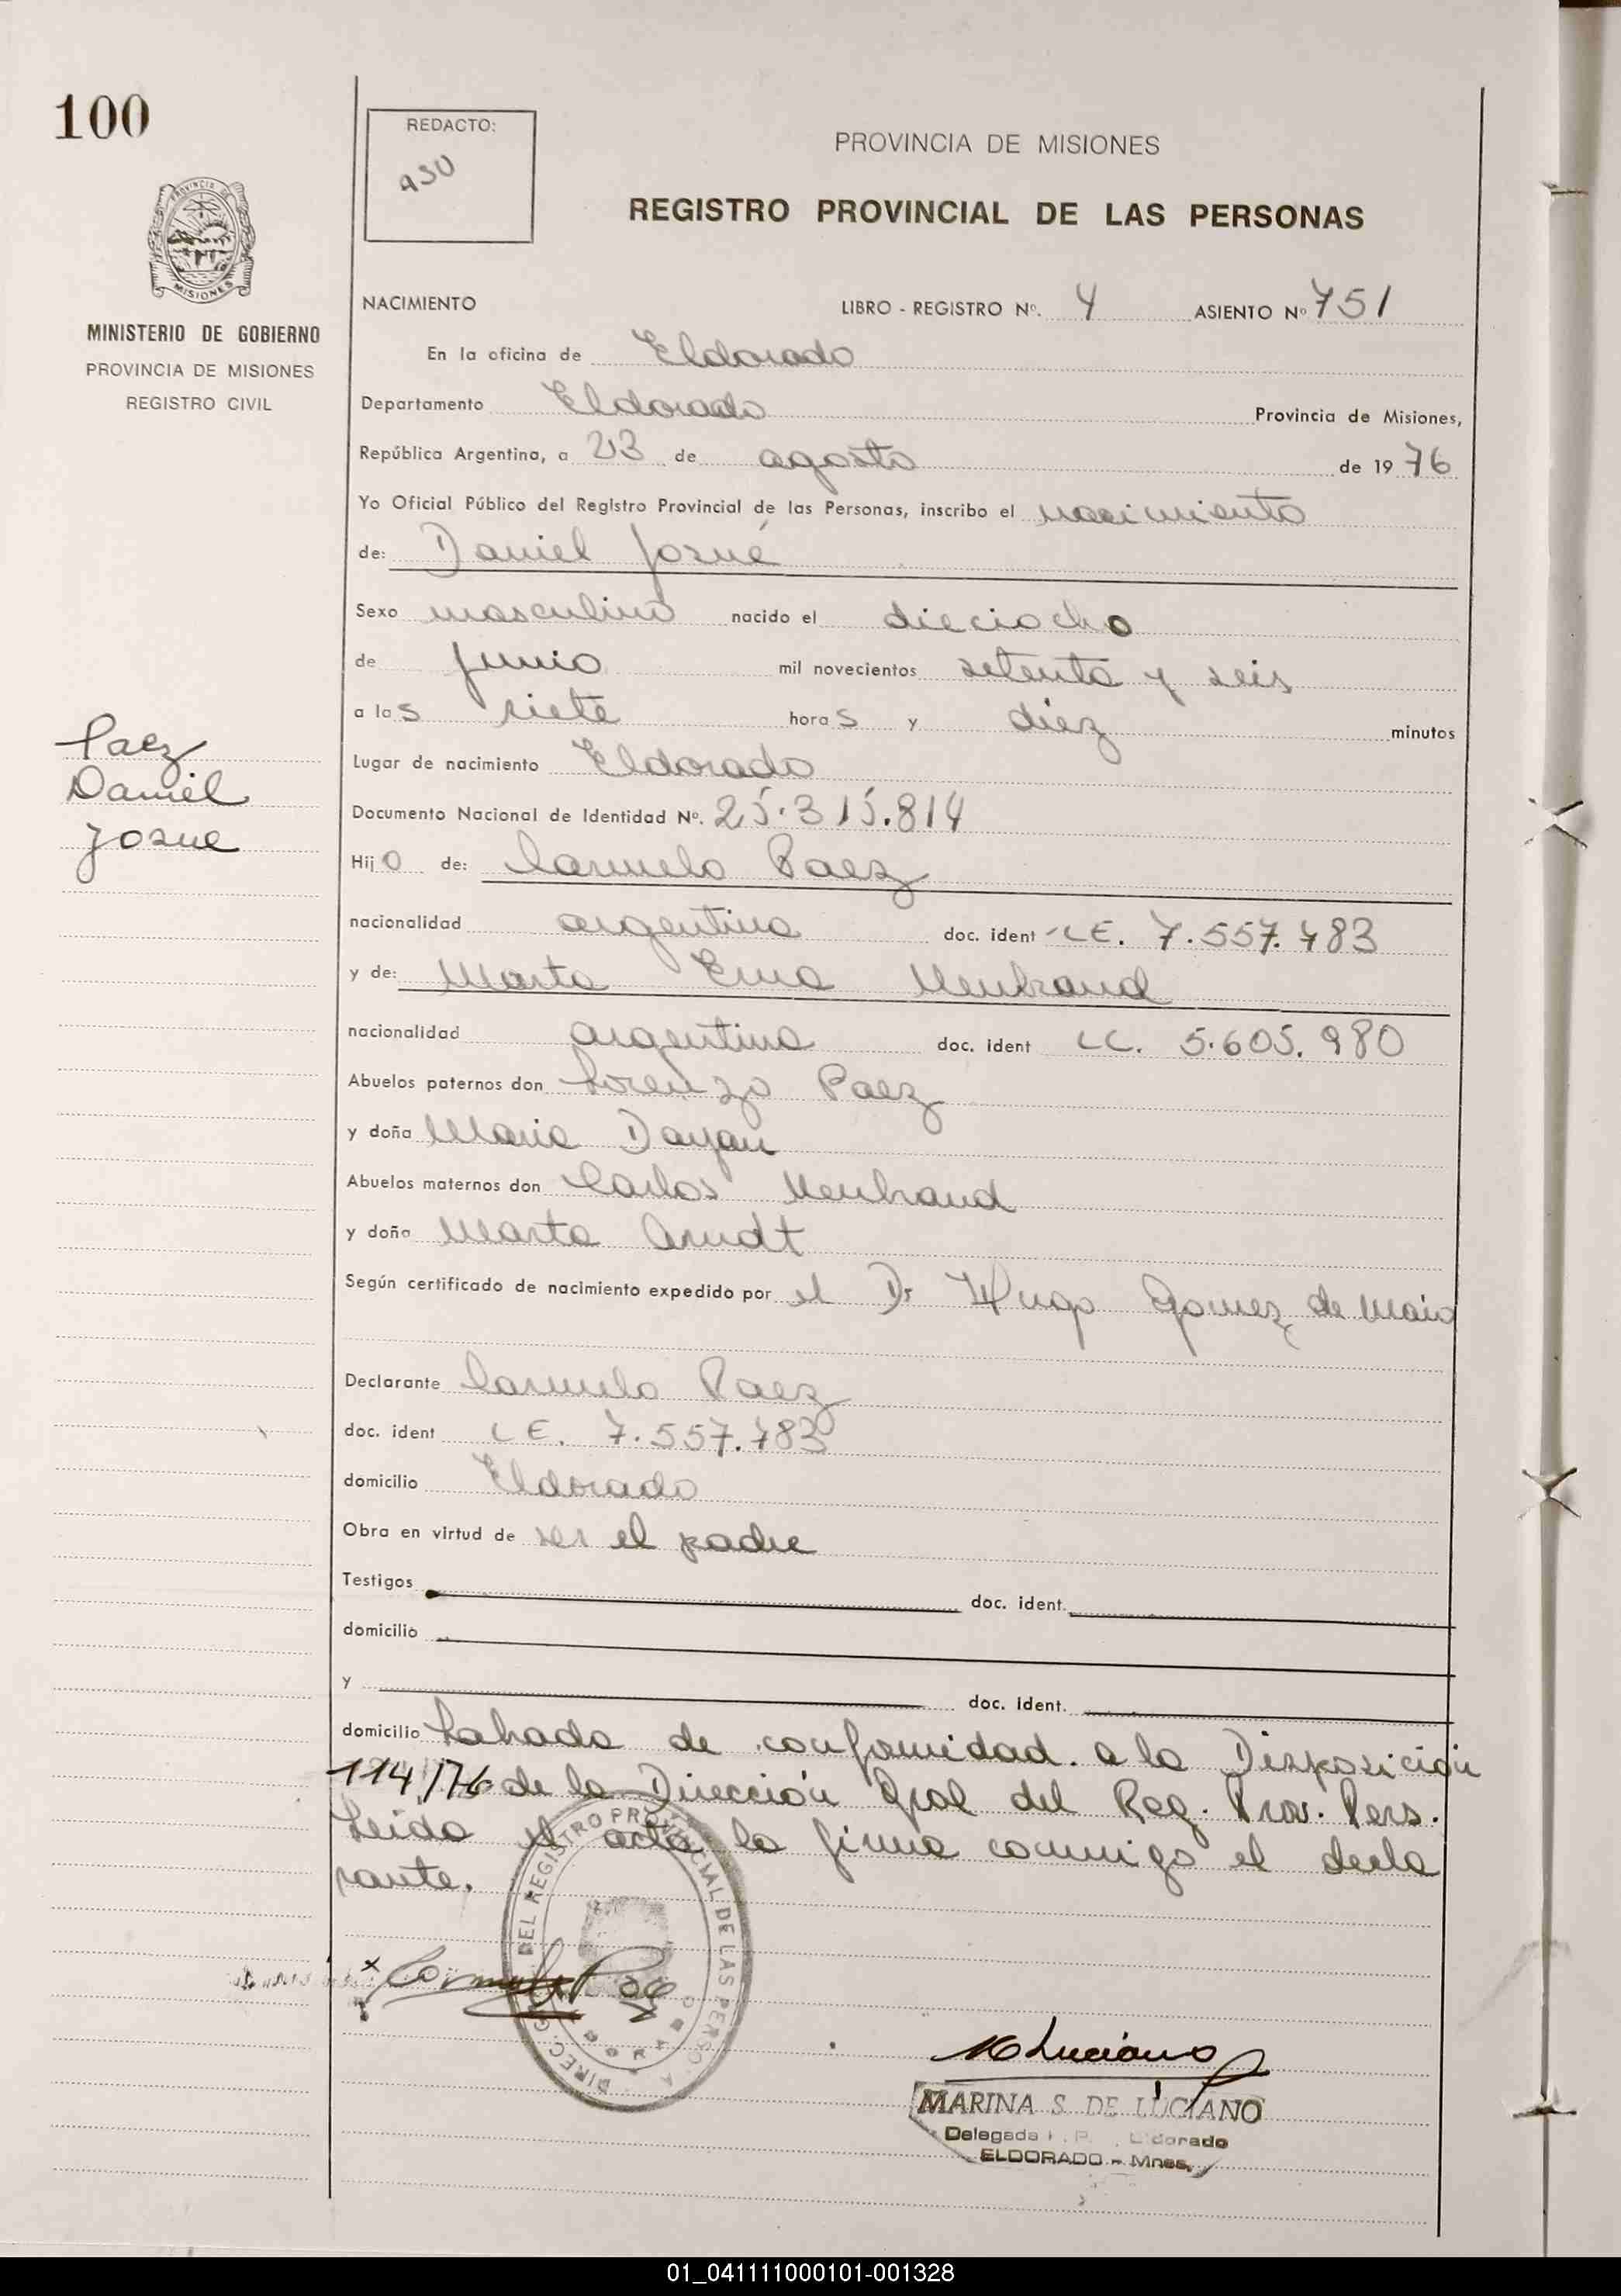 100
REDACTO:
PROVINCIA DE MISIONES
REGISTRO PROVINCIAL DE LAS PERSONAS
PROVINCIA DE
MISIONES
MINISTERIO DE GOBIERNO
PROVINCIA DE MISIONES
REGISTRO CIVIL
NACIMIENTO LIBRO - REGISTRO Nº. 4 ASIENTO Nº 751
En la oficina de Eldorado
Departamento Eldorado Provincia de Misiones,
República Argentina, a 23 de agosto de 19 76
Yo Oficial Público del Registro Provincial de las Personas, inscribo el nacimiento
de: Daniel Josué
Sexo masculino nacido el dieciocho
de junio mil novecientos setenta y seis
a las siete horas y diez minutos
Paez
Daniel
Josue
Lugar de nacimiento Eldorado
Documento Nacional de Identidad Nº. 25.315.814
Hijo de: Carmelo Paez
nacionalidad argentina doc. ident LE. 7.557.783
y de: Marta Ema Neubrand
nacionalidad argentina doc. ident LC. 5.605.980
Abuelos paternos don Lorenzo Paez
y doña Maria Dayan
Abuelos maternos don Carlos Neubrand
y doña Marta Arndt
Según certificado de nacimiento expedido por el Dr Hugo Gomez de Maio
Declarante Carmelo Paez
doc. ident LE. 7.557.783
domicilio Eldorado
Obra en virtud de ser el padre
Testigos doc. ident.
domicilio
y doc. ident.
domicilio Labrada de conformidad a la Disposición
114/76 de la Dirección Gral del Reg. Prov. Pers.
Leida el acta la firma conmigo el decla
rante.
DIREC. G DEL REGISTRO PROVINCIAL DE LAS PERSO
Carmelo Paez
M Luciano
MARINA S. DE LUCIANO
Delegada Eldorado
ELDORADO - Mnes.
01_041111000101-001328